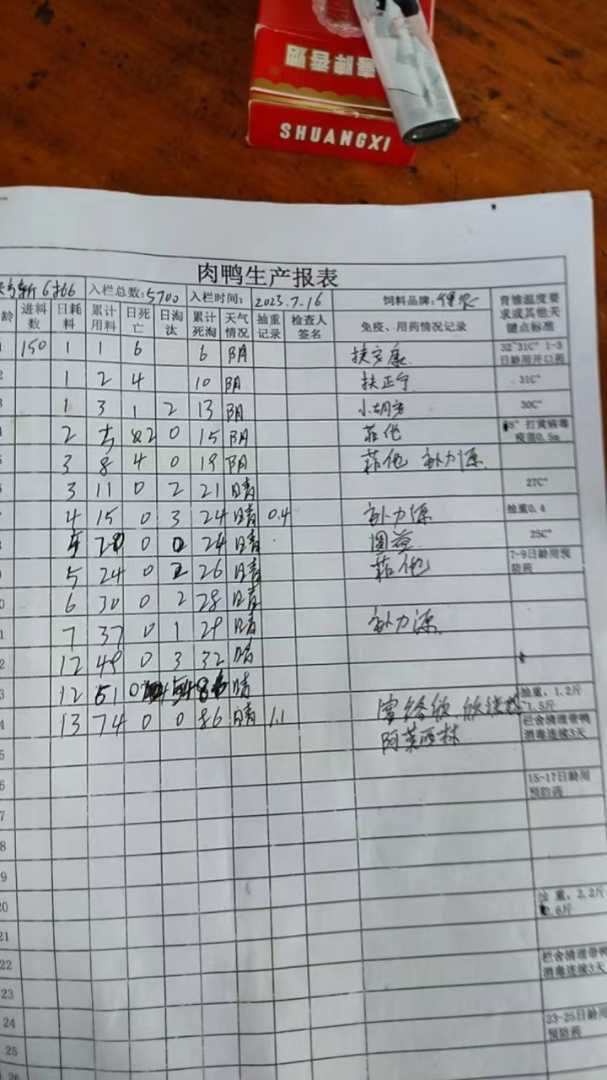 SHUANGXI
肉鸭生产报表
6766 入栏总数:5700 入栏时间: 2023.7.16 饲料品牌: 育雏温度要求或其他关键点标准
龄 进料数 日耗料 累计用料 日死亡 日淘汰 累计死淘 天气情况 抽重记录 检查人签名 免疫、用药情况记录
150 1 1 6 6 阴 扶安康 32~31C° 1-3日龄用开口药
1 2 4 10 阴 扶正宁 31C°
1 3 1 2 13 阴 30C°
2 5 2 0 15 阴 菇他 打黄病毒疫苗0.5m
3 8 4 0 19 阴 菇他 补力源
3 11 0 2 21 晴 27C°
4 15 0 3 24 晴 0.4 补力源 抽重0.4
0 0 24 晴 25C°
5 24 0 2 26 晴 菇他 7-9日龄用预防药
6 30 0 2 28 晴
7 37 0 1 29 晴 补力源
12 49 0 3 32 晴
12 61 0 86 晴 抽重，1.2斤
13 74 0 0 86 晴 1.1 阿莫西林 栏舍清理带鸭消毒连续3天
15-17日龄用预防药
20 抽重，2.2斤
21
22 栏舍清理带鸭消毒连续3天
23
24 23-25日龄用预防药
25
26